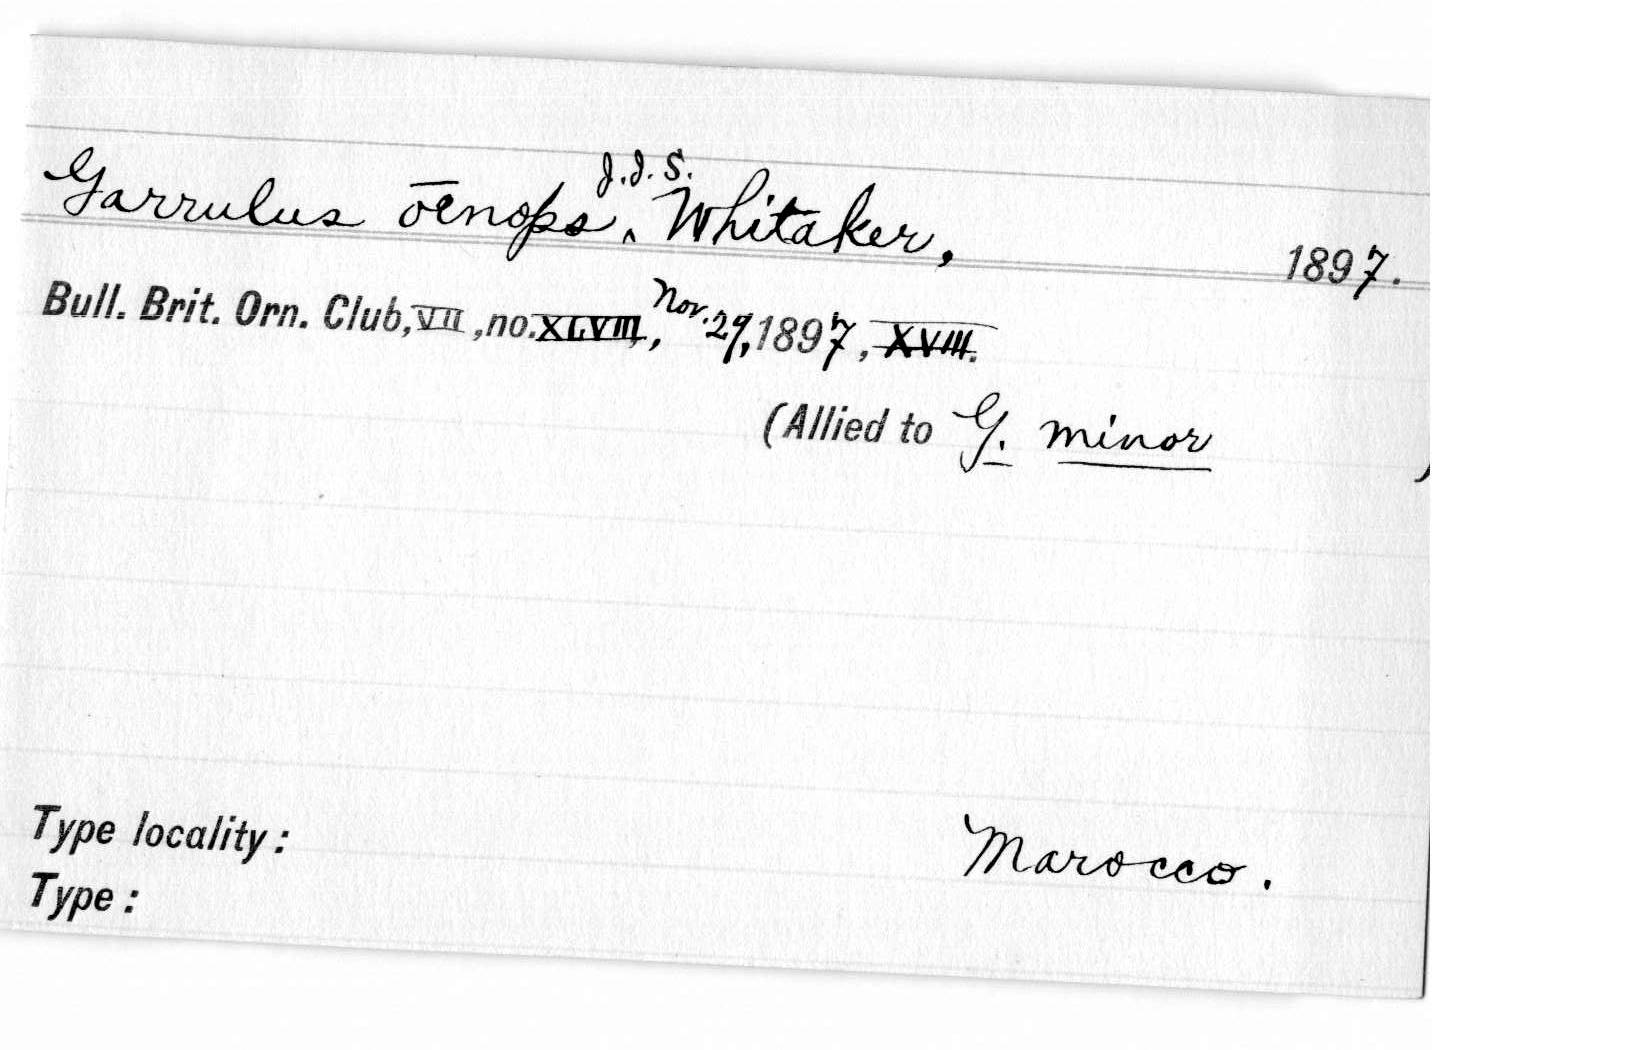 Garrulus œnops, J.I.S. Whitaker, 1897.
Bull. Brit. Orn. Club, VII, no. XLVIII, Nov. 29, 1897, XVIII.
(Allied to G. minor )
Type locality: Marocco.
Type: